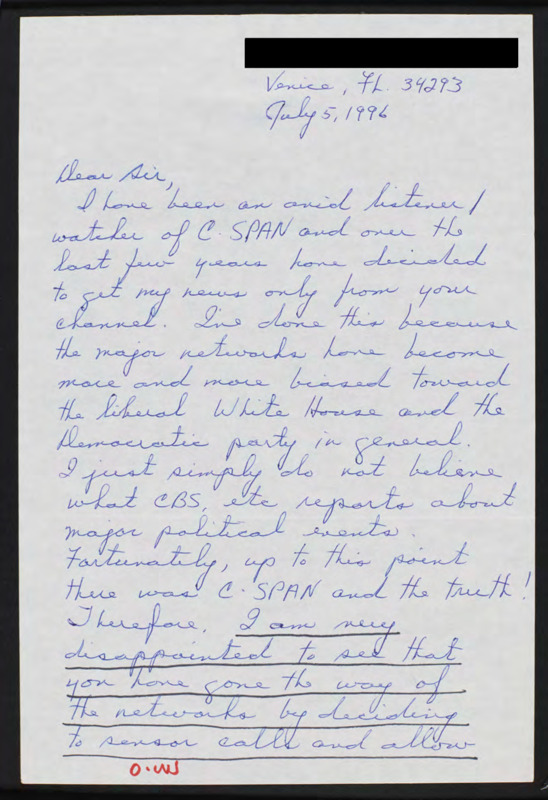 Venice, FL. 34293
July 5, 1996
Dear Sir,
I have been an avid listener/
watcher of C-SPAN and over the
last few years have decided
to get my news only from your
channel. I've done this because
the major networks have become
more and more biased toward
the liberal White House and the
Democratic party in general.
I just simply do not believe
what CBS, etc reports about
major political events.
Fortunately, up to this point
there was C-SPAN and the truth!
Therefore, I am very
disappointed to see that
you have gone the way of
the networks by deciding
to sensor calls and allow